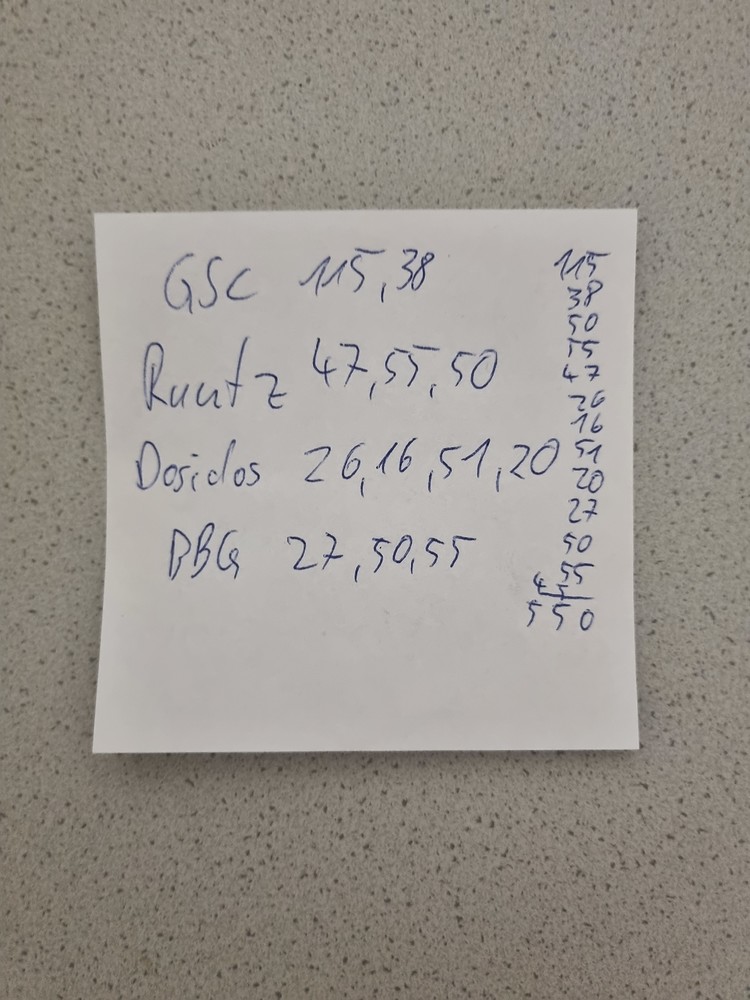 GSC 115,38
Runtz 47,55,50
Dosidos 26,16,51,20
BBG 27,50,55
115
38
50
55
47
26
16
51
20
27
50
55
4 5
550